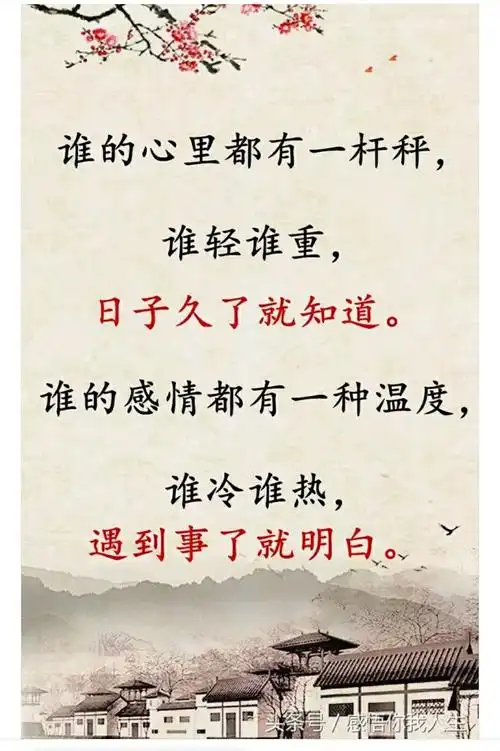 谁的心里都有一杆秤，
谁轻谁重，
日子久了就知道。
谁的感情都有一种温度，
谁冷谁热，
遇到事了就明白。
头条号/感悟你我人生